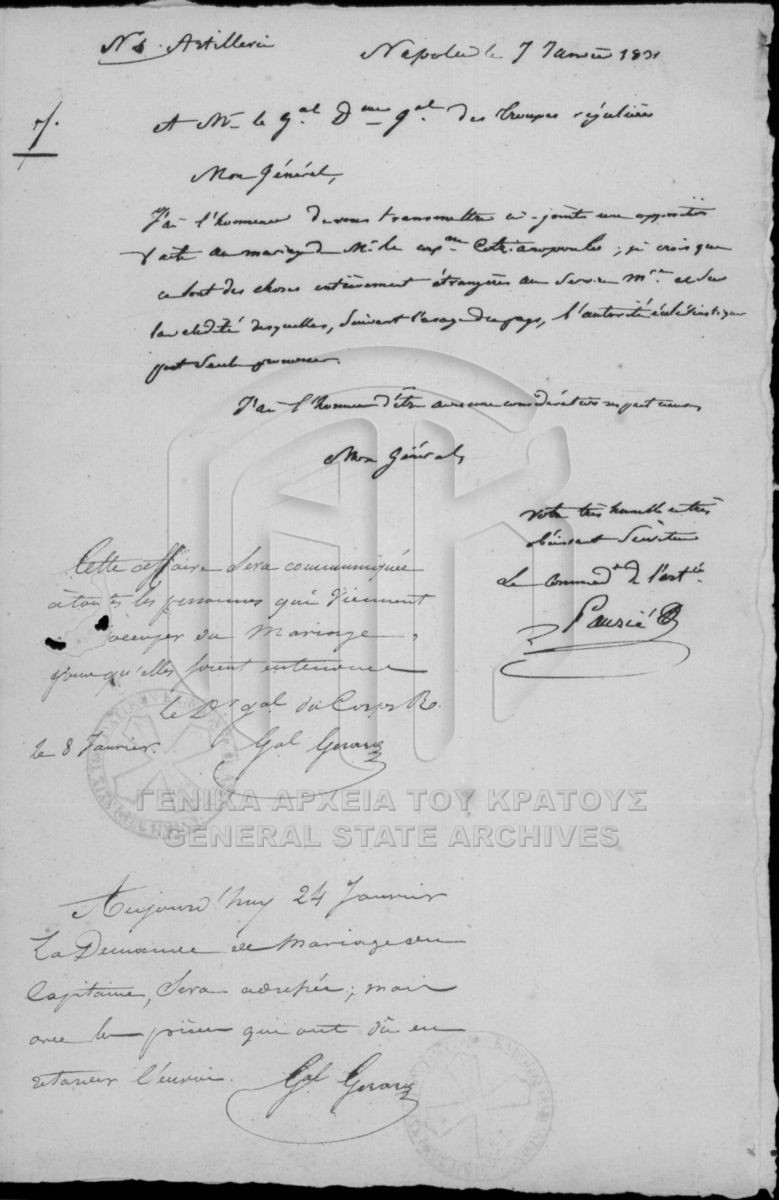 Artillerie
Napoli le 7 Janvier 1831
7.
A Mr le Gal Dteur gal des troupes régulières
Mon Général,
J'ai l'honneur de vous transmettre ci-jointe une opposition
faite au mariage de Mr le capne ; je crois que
ce sont des choses entièrement étrangères au service mre et sur
la validité desquelles, suivant l'usage du pays, l'autorité éclésiastique
peut seule prononcer.
J'ai l'honneur d'être avec une considération respectueuse
Mon Général,
votre très humble et très
obéissant Serviteur
Le commandt de l'artie
Pauzié
Cette affaire sera communiquée
à toutes les personnes qui viennent
s'occuper du Mariage,
pour qu'elles soient entendues
Le Dr gal du Corps R.
Le 8 Janvier. Gal Gerard
ΓΕΝΙΚΑ ΑΡΧΕΙΑ ΤΟΥ ΚΡΑΤΟΥΣ
GENERAL STATE ARCHIVES
Aujourd'huy 24 Janvier
La Demande de Mariage du
Capitaine, Sera adressée; mais
avec les pièces qui ont dû en
retarder l'envoi. Gal Gerard